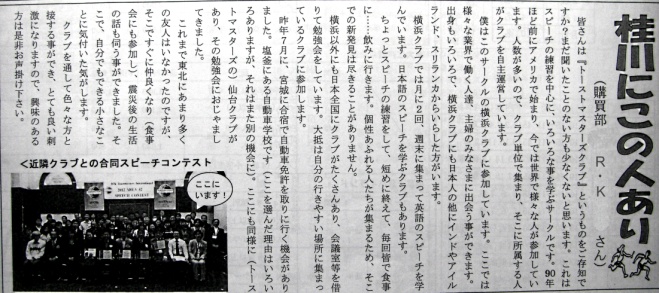 桂川にこの人あり
(購買部 R.K さん)
皆さんは『トーストマスターズクラブ』というものをご存知で
すか?まだ聞いたことのない方も少なくないと思います。これは
スピーチの練習を中心に、いろいろな事を学ぶサークルです。90年
ほど前にアメリカで始まり、今では世界で様々な人が参加してい
ます。人数が多いので、クラブ単位で集まり、そこに所属する人
がクラブを自主運営しています。
僕はこのサークルの横浜クラブに参加しています。ここでは
様々な業界で働く人達、主婦のみなさまに出会う事ができます。
出身もいろいろで、横浜クラブにも日本人の他にインドやアイル
ランド、スリランカからいらした方がいます。
横浜クラブでは月に2回、週末に集まって英語のスピーチを学
んでいます。日本語のスピーチを学ぶクラブもあります。
ちょっとスピーチの練習をして、短めに終えて、毎回皆で食事
に……飲みに行きます。個性あふれる人たちが集まるため、そこ
での新発見は尽きることがありません。
横浜以外にも日本全国にクラブがたくさんあり、会議室等を借
りて勉強会をしています。大抵は自分の行きやすい場所に集まっ
ているクラブに参加します。
昨年7月に、宮城に合宿で自動車免許を取りに行く機会があり
ました。塩釜にある自動車学校です(ここを選んだ理由はいろい
ろありますが、それはまた別の機会に)。ここにも同様に(トース
トマスターズの)仙台クラブが
あり、その勉強会におじゃまし
てきました。
これまで東北にあまり多く
の友人はいなかったのですが、
そこですぐに仲良くなり(食事
会にも参加し)、震災後の生活
の話も伺う事ができました。そ
こで、自分でもできる小さなこ
とに気付いた気がします。
クラブを通して色々な方と
接する事ができ、とても良い刺
激になりますので、興味のある
方は是非お声掛け下さい。
<近隣クラブとの合同スピーチコンテスト>
ここに
います!